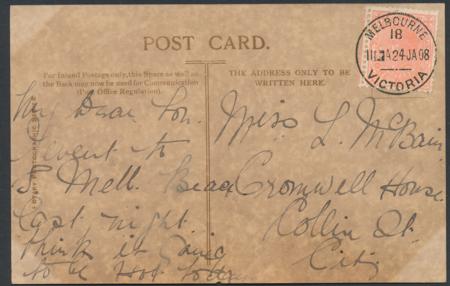 POST CARD.
For Inland Postage only, this Space as well as
the Back may now be used for Communication
(Post Office Regulation).
THE ADDRESS ONLY TO BE
WRITTEN HERE.
MELBOURNE
18
24 JA 08
VICTORIA
My Dear
I went to
S. Mell. Beach
Last night.
think it is going
to be Hot today
Miss L. McBain
Cromwell House
Collin St.
City